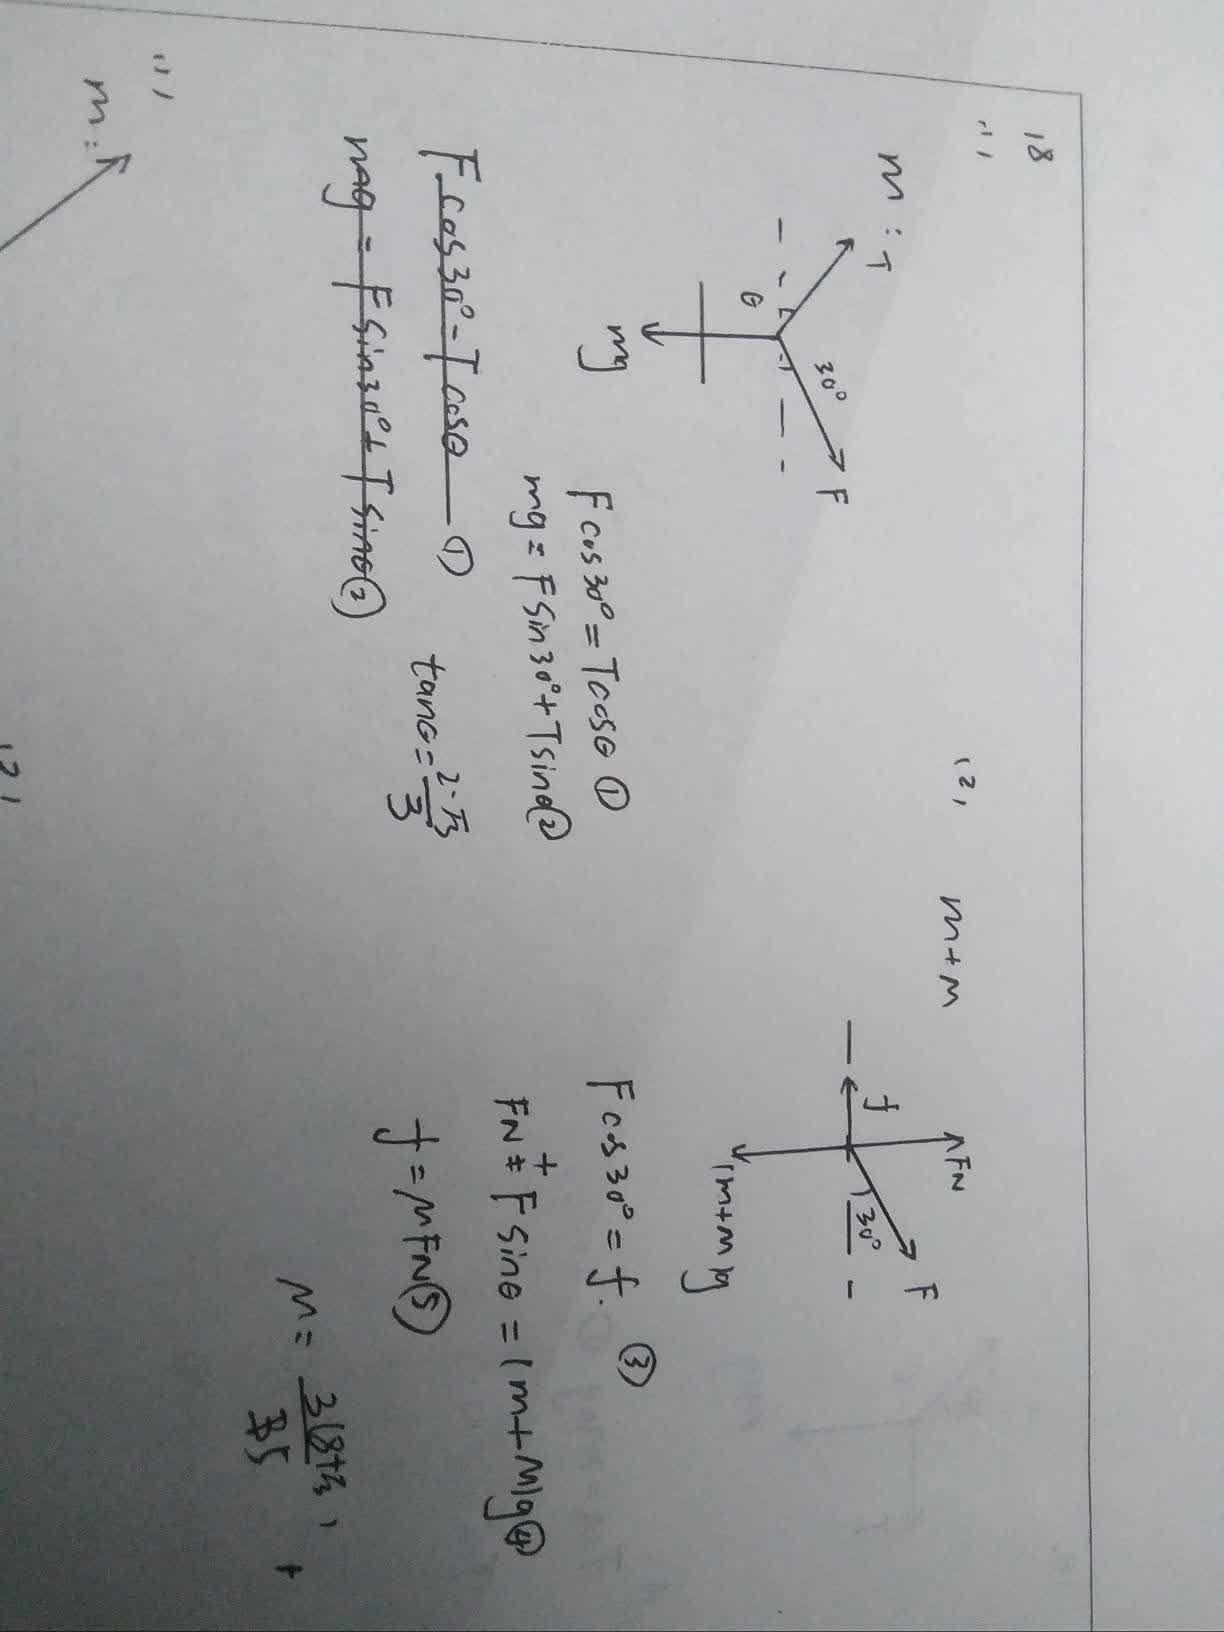 18
(1)
m:
T
30°
F
θ
mg
Fcos30°=Tcosθ ①
mg=Fsin30°+Tsinθ②
Fcos30°-Tcosθ ①
mg=Fsin30°+Tsinθ②
tanθ=2·√3/3
(2)
m+M
FN
F
f
30°
(m+M)g
Fcos30°=f. ③
FN+Fsinθ=(m+M)g④
f=μFN⑤
(1)
m:
(2)